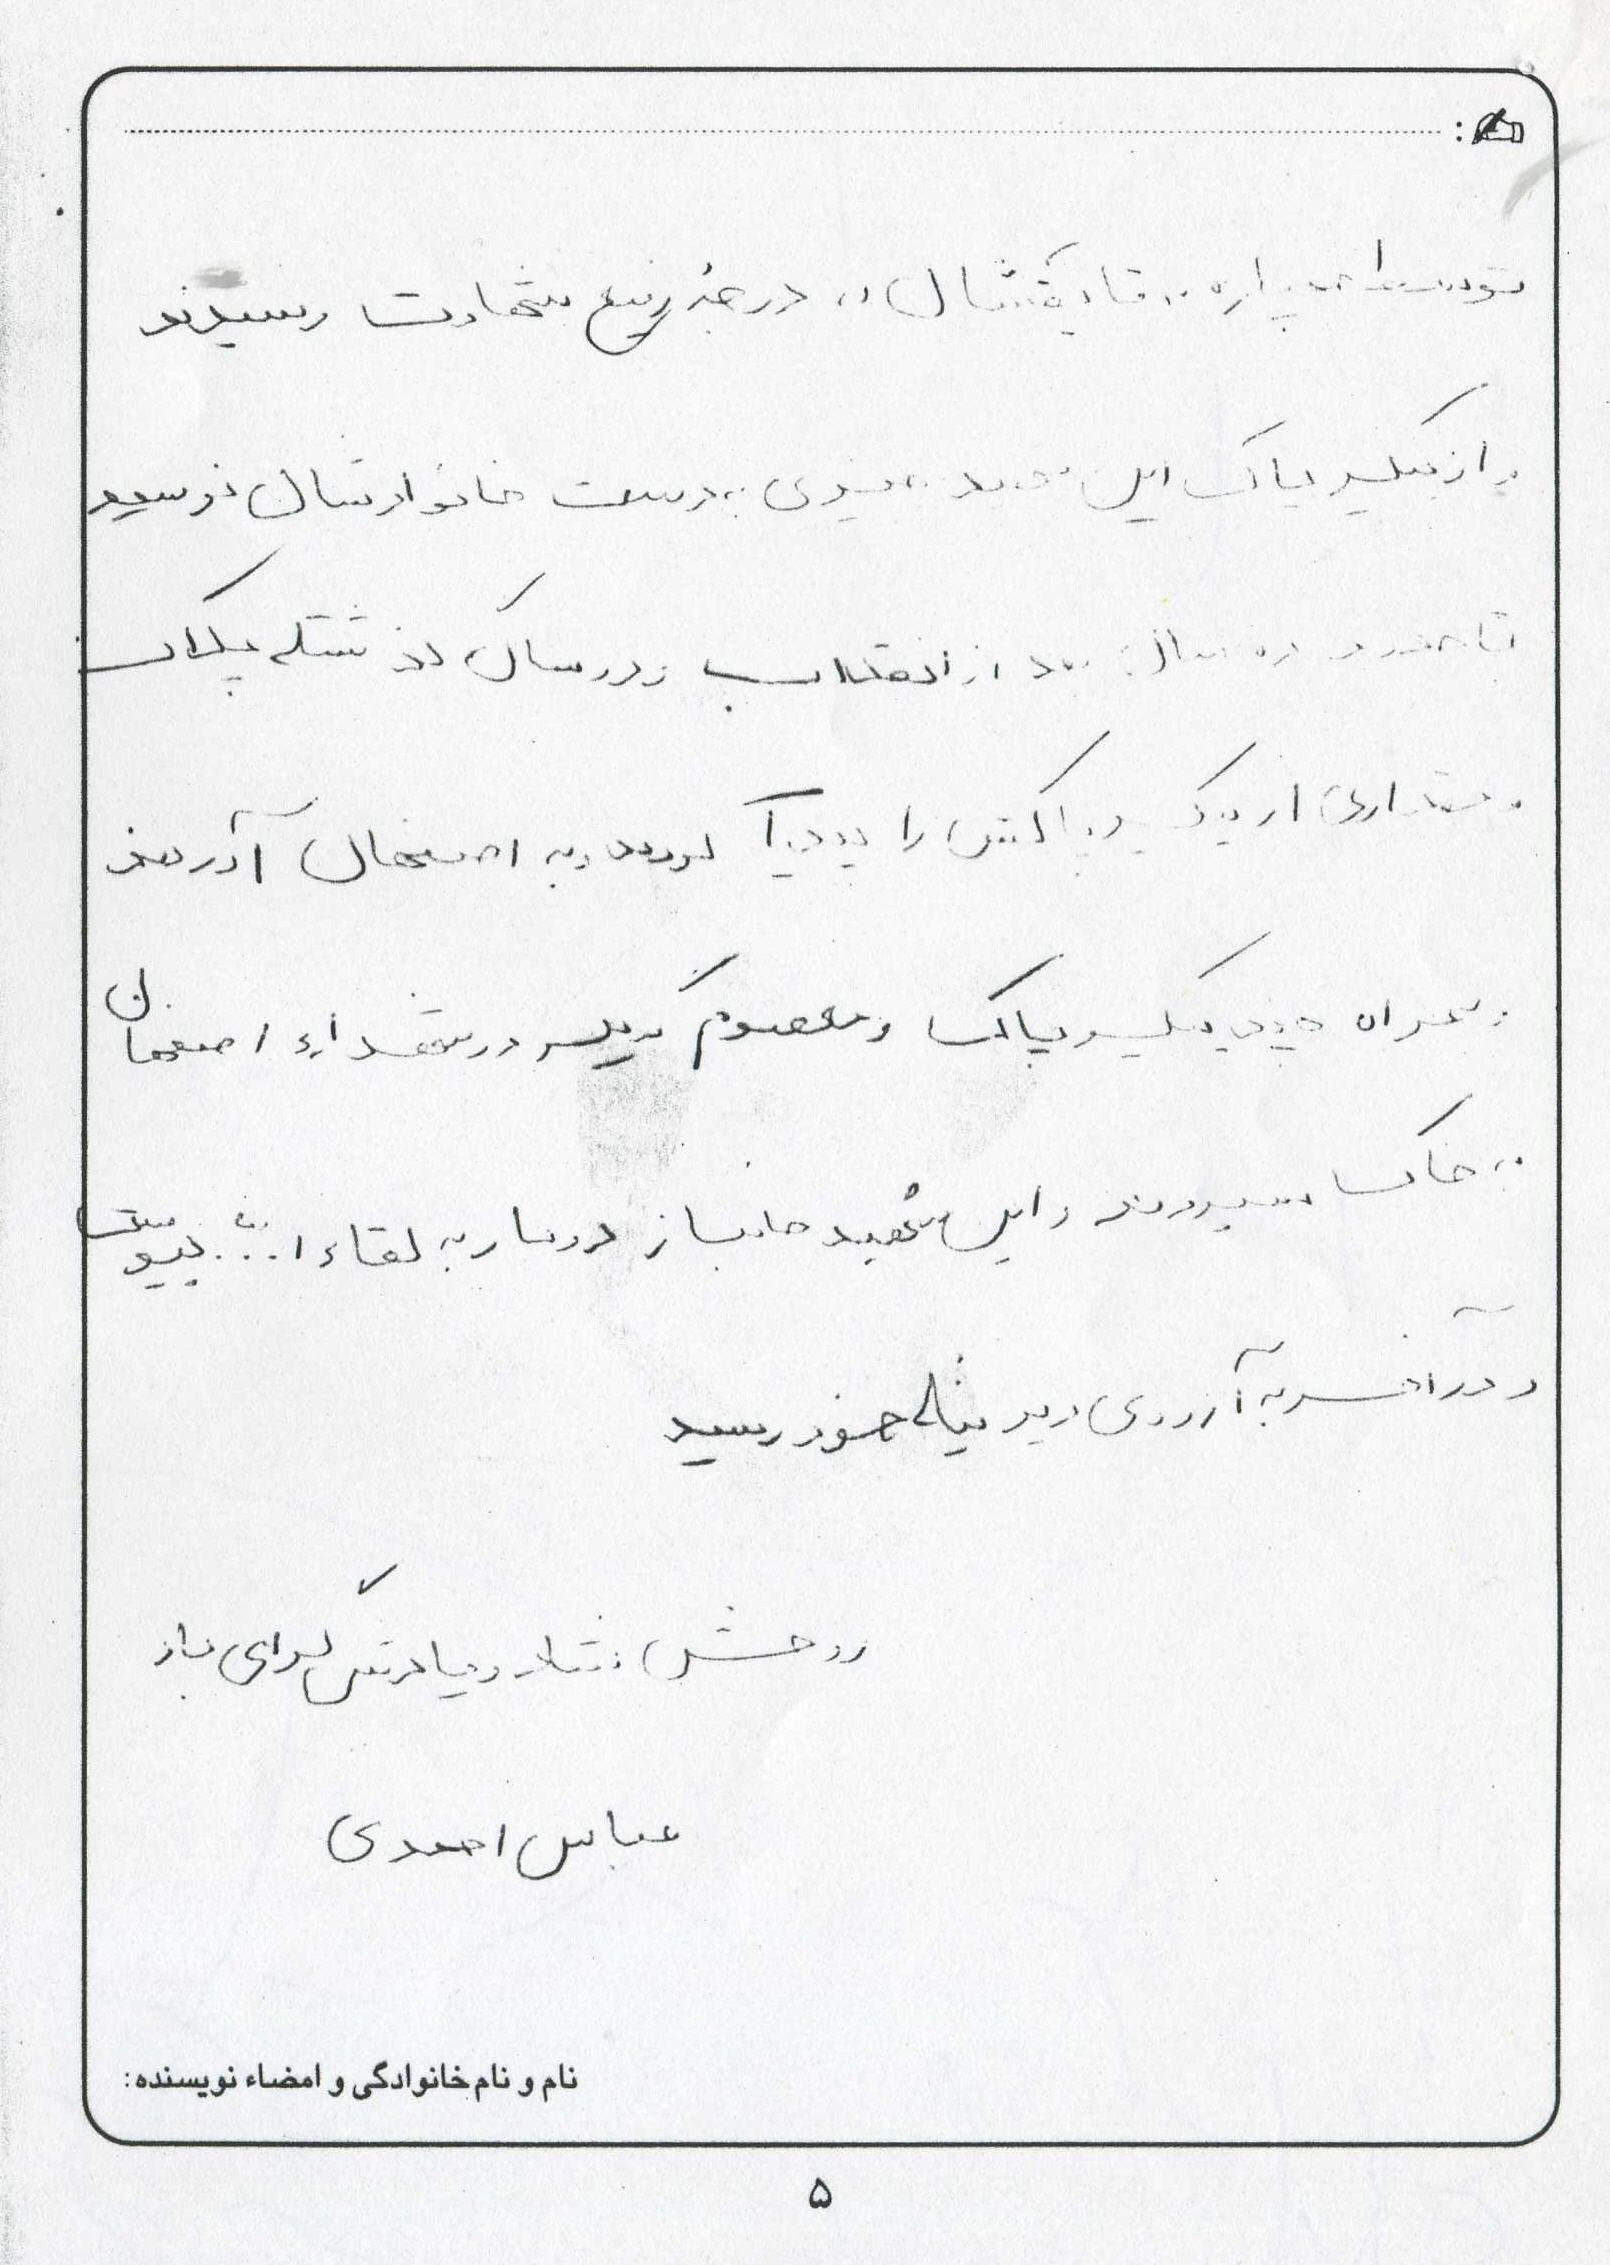 توسط خمپاره به قایقشان، درجه رفیع شهادت رسیدند
و از پیکر پاک این شهید چیزی بدست خانوادشان نرسید
تا حدود ده سال بعد از انقلاب و در سال گذشته پلاک
و مقداری از پیکر پاکش را پیدا کردند و به اصفهان آوردند
و همراه چند پیکر پاک و معصوم دیگر در شهداء اصفهان
به خاک سپردند و این شهید جانباز فداکار به لقاء ا... پیوست
و در آخر به آرزوی دیرینه خود رسید
روحش شاد و یادش گرامی باد
عباس احمدی
نام و نام خانوادگی و امضاء نویسنده:
۵